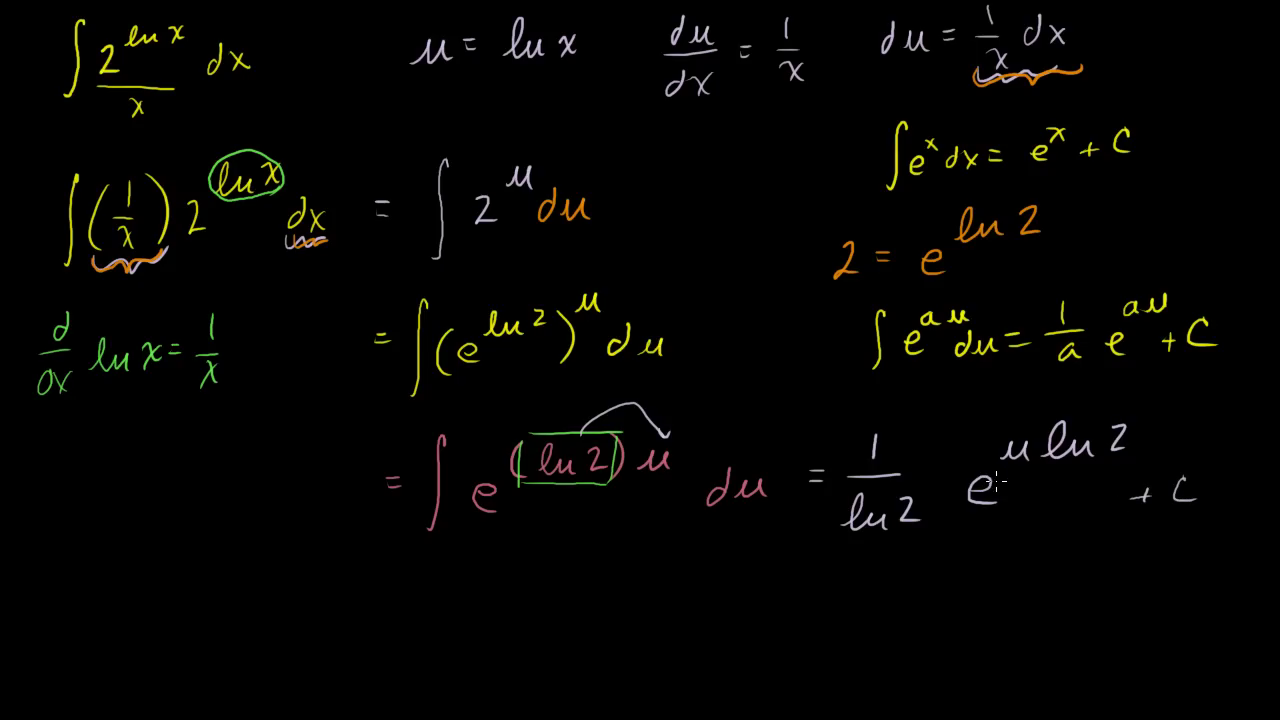 ∫ 2^(ln x) / x dx    u = ln x    du/dx = 1/x    du = 1/x dx
∫ e^x dx = e^x + C
∫ (1/x) 2^(ln x) dx = ∫ 2^u du
2 = e^(ln 2)
d/dx ln x = 1/x    = ∫ (e^(ln 2))^u du    ∫ e^(au) du = 1/a e^(au) + C
= ∫ e^((ln 2)u) du = 1/(ln 2) e^(u ln 2) + C